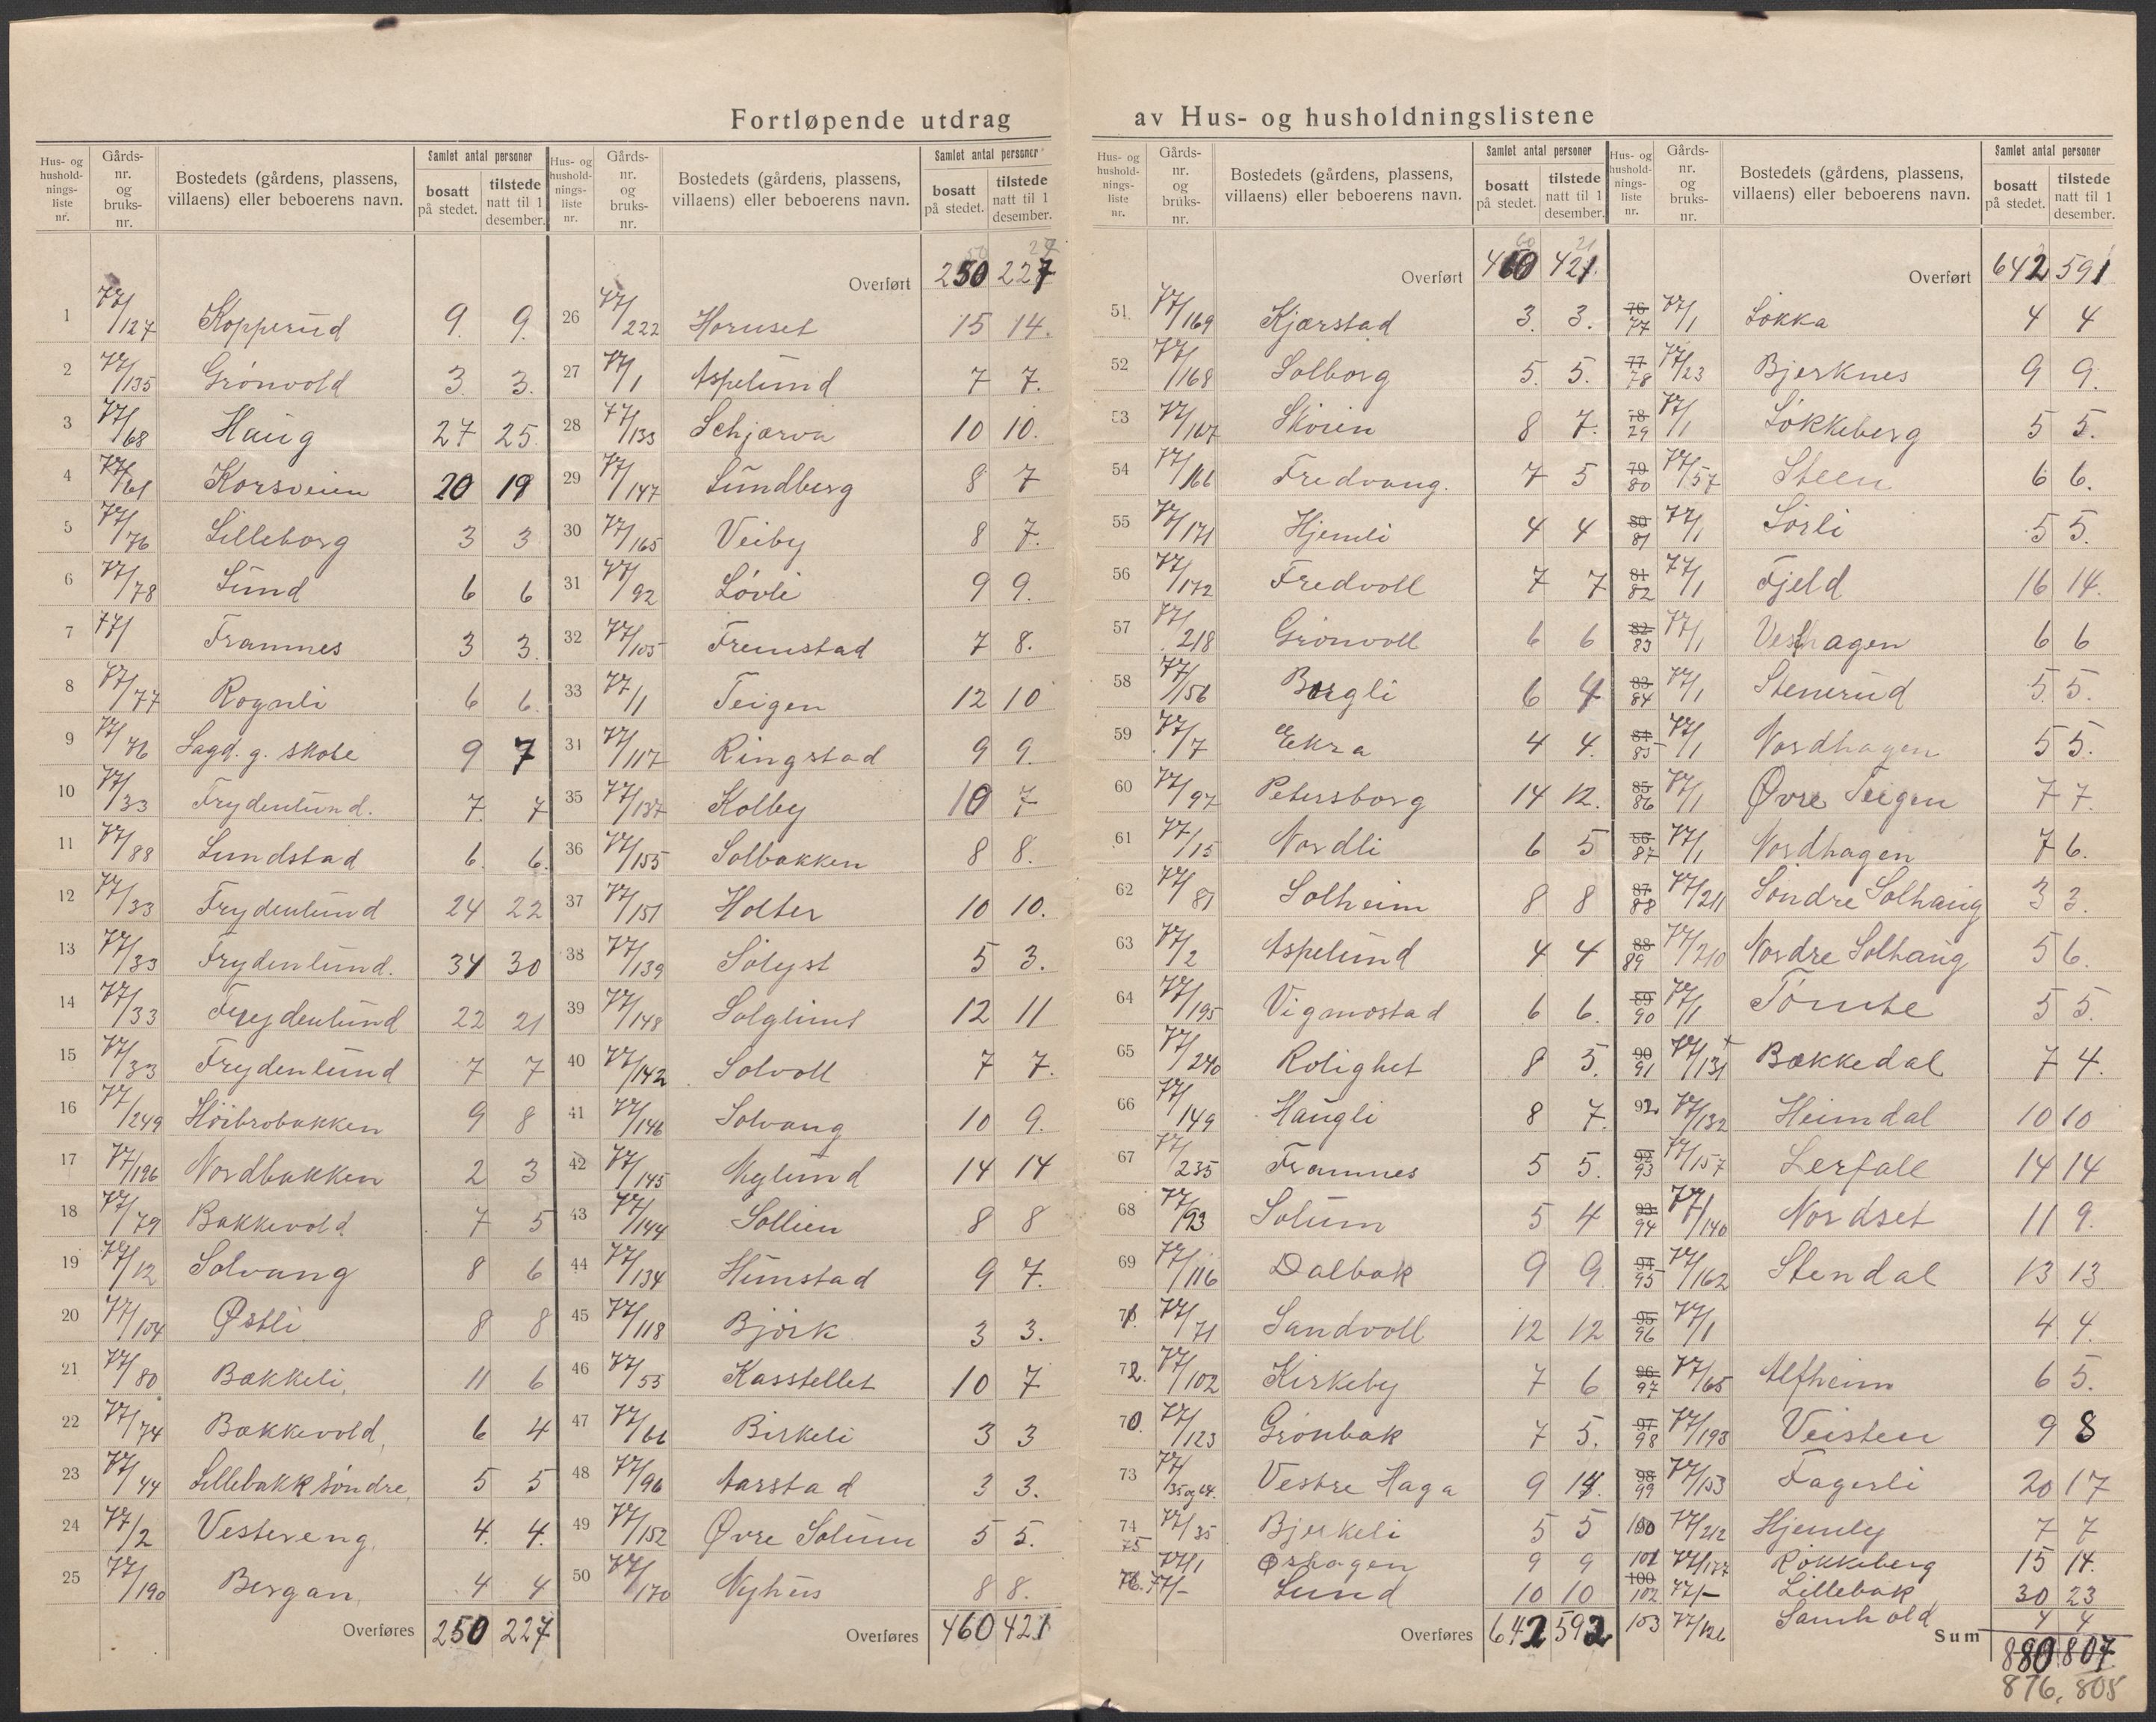 Fortløpende utdrag av Hus- og husholdningslistene
Hus- og hushold-nings-liste nr. Gårds-nr. og bruks-nr. Bostedets (gårdens, plassens, villaens) eller beboerens navn. Samlet antal personer bosatt på stedet. tilstede natt til 1 desember.
1 77/127 Kopperud 9. 9.
2 77/135 Grönvold 3. 3.
3 77/68 Haug 27 25.
4 77/61 Korsveien 20 19
5 77/76 Lilleborg 3 3
6 77/78 Lund 6 6
7 77/ Framnes 3 3.
8 77/77 Rognli 6 6.
9 77/76 Lagd. g. skole 9 7
10 77/33 Frydenlund. 7. 7
11 77/88 Lundstad 6. 6.
12 77/33 Frydenlund 24 22
13 77/33 Frydenlund. 34 30
14 77/33 Frydenlund 22 21
15 77/33 Frydenlund 7 7
16 77/249 Höibrobakken 9 8
17 77/196 Nordbakken 2 3
18 77/79 Bakkevold 7 5
19 77/12 Solvang 8 6
20 77/104 Østli 8 8
21 77/80 Bækkeli, 11 6
22 77/74 Bækkevold, 6 4
23 77/44 Lillebækk söndre, 5 5
24 77/2 Vestereng. 4. 4.
25 77/190 Bergan, 4 4
Overføres 250 227
Hus- og hushold-nings-liste nr. Gårds-nr. og bruks-nr. Bostedets (gårdens, plassens, villaens) eller beboerens navn. Samlet antal personer bosatt på stedet. tilstede natt til 1 desember.
Overført 250 227
26 77/222 Horuset 15 14.
27 77/1 Aspelund 7 7.
28 77/133 Schjærva 10 10.
29 77/147 Lundberg 8 7
30 77/165 Veiby 8 7.
31 77/92 Lövli 9 9.
32 77/105 Fremstad 7 8.
33 77/1 Teigen 12 10
34 77/117 Ringstad 9 9.
35 77/137 Kolby 10 7
36 77/155 Solbakken 8 8.
37 77/151 Holter 10 10.
38 77/139 Solyst 5 3.
39 77/148 Solglimt 12 11
40 77/142 Solvoll 7 7.
41 77/146 Solvang 10 9.
42 77/145 Nylund 14 14
43 77/144 Sollien 8 8
44 77/134 Hunstad 9 7.
45 77/118 Björk 3 3.
46 77/55 Kasstellet 10 7
47 77/66 Birkeli 3 3
48 77/96 Aarstad 3 3.
49 77/152 Øvre Solum 5 5.
50 77/170 Nyhus 8 8.
Overføres 460 421
Hus- og hushold-nings-liste nr. Gårds-nr. og bruks-nr. Bostedets (gårdens, plassens, villaens) eller beboerens navn. Samlet antal personer bosatt på stedet. tilstede natt til 1 desember.
Overført 460 421.
51 77/169 Kjærstad 3. 3.
52 77/168 Solborg 5. 5.
53 77/167 Skoien 8 7.
54 77/166 Fredvang. 7 5
55 77/171 Hjemli 4 4
56 77/172 Fredvoll 7 7
57 77/218 Grönvoll 6 6
58 77/156 Bergli 6 4
59 77/7 Ekra 4 4.
60 77/97 Petersborg 14 12.
61 77/15 Nordli 6 5
62 77/81 Solheim 8 8
63 77/2 Aspelund 4 4
64 77/195 Vigmostad 6 6.
65 77/240 Rolighet 8 5.
66 77/149 Haugli 8 7.
67 77/235 Framnes 5 5.
68 77/93 Solum 5 4
69 77/116 Dalbak 9 9
71. 77/71 Sandvoll 12 12
72. 77/102 Kirkeby 7 6
70. 77/123 Grönbak 7 5.
73 77/35 og 64. Vestre Haga 9 14.
74 77/35 Bjerkeli 5 5
75 77/1 Øshagen 9 9
76. 77/- Lund 10 10
Overføres 642 592
Hus- og hushold-nings-liste nr. Gårds-nr. og bruks-nr. Bostedets (gårdens, plassens, villaens) eller beboerens navn. Samlet antal personer bosatt på stedet. tilstede natt til 1 desember.
Overført 642 591
76 77 77/1 Løkka 4 4
77 78 77/23 Bjerknes 9 9.
78 79 77/1 Lökkeberg 5 5.
79 80 77/57 Steen 6 6.
80 81 77/1 Lörli 5 5.
81 82 77/1 Fjeld 16 14.
82 83 77/1 Vesthagen 6 6
83 84 77/1 Stenerud 5 5.
84 85 77/1 Nordhagen 5 5.
85 86 77/1 Øvre Teigen 7 7.
86 87 77/1 Nordhagen 7 6.
87 88 77/211 Söndre Solhaug 3 3.
88 89 77/210 Nordre Solhaug 5 6.
89 90 77/1 Tömte 5 5.
90 91 77/131 Bækkedal 7 4.
92 77/132 Heimdal 10 10
92 93 77/157 Lerfall 14 14
93 94 77/140 Nordset 11 9.
94 95 77/162 Stendal 13 13
95 96 77/1 4 4.
96 97 77/65 Alfheim 6 5.
97 98 77/193 Veisten 9 8
98 99 77/153 Fagerli 20 17
100 77/212 Hjemly 7 7
101 77/177 Røkkeberg 15 14.
100 102 77/- Lillebæk 30 23
103 77/126 Samhold 4 4
Sum 880 807
876. 805